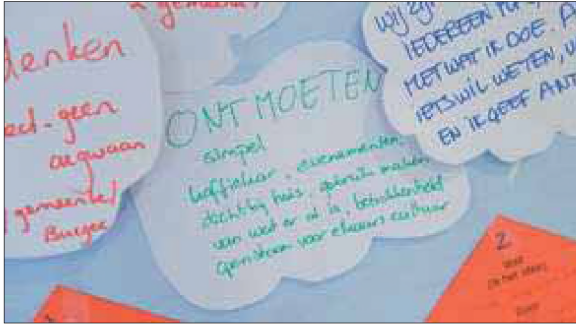 2 gemeente!
denken
geen
argwaan
gemeente/
Burger
ONTMOETEN
simpel
koffiebar, evenementen,
dichtbij huis, gebruik maken
van wat er al is, betrokkenheid
voor elkaars cultuur
Wij zijn
IEDEREEN
MET WAT IK DOE. A
IETS WIL WETEN, V
EN IK GEEF ANT
2